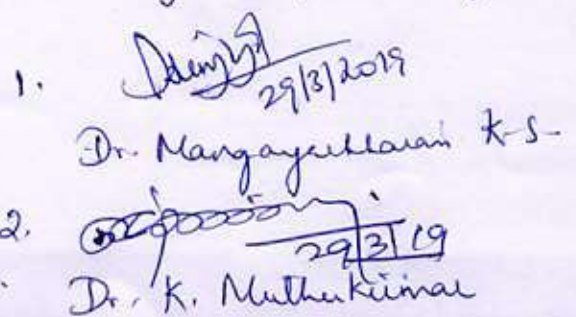 1.
29/3/2019
Dr. Mangayarkkarasi K-S-
2.
29/3/19
Dr. K. Muthukumar